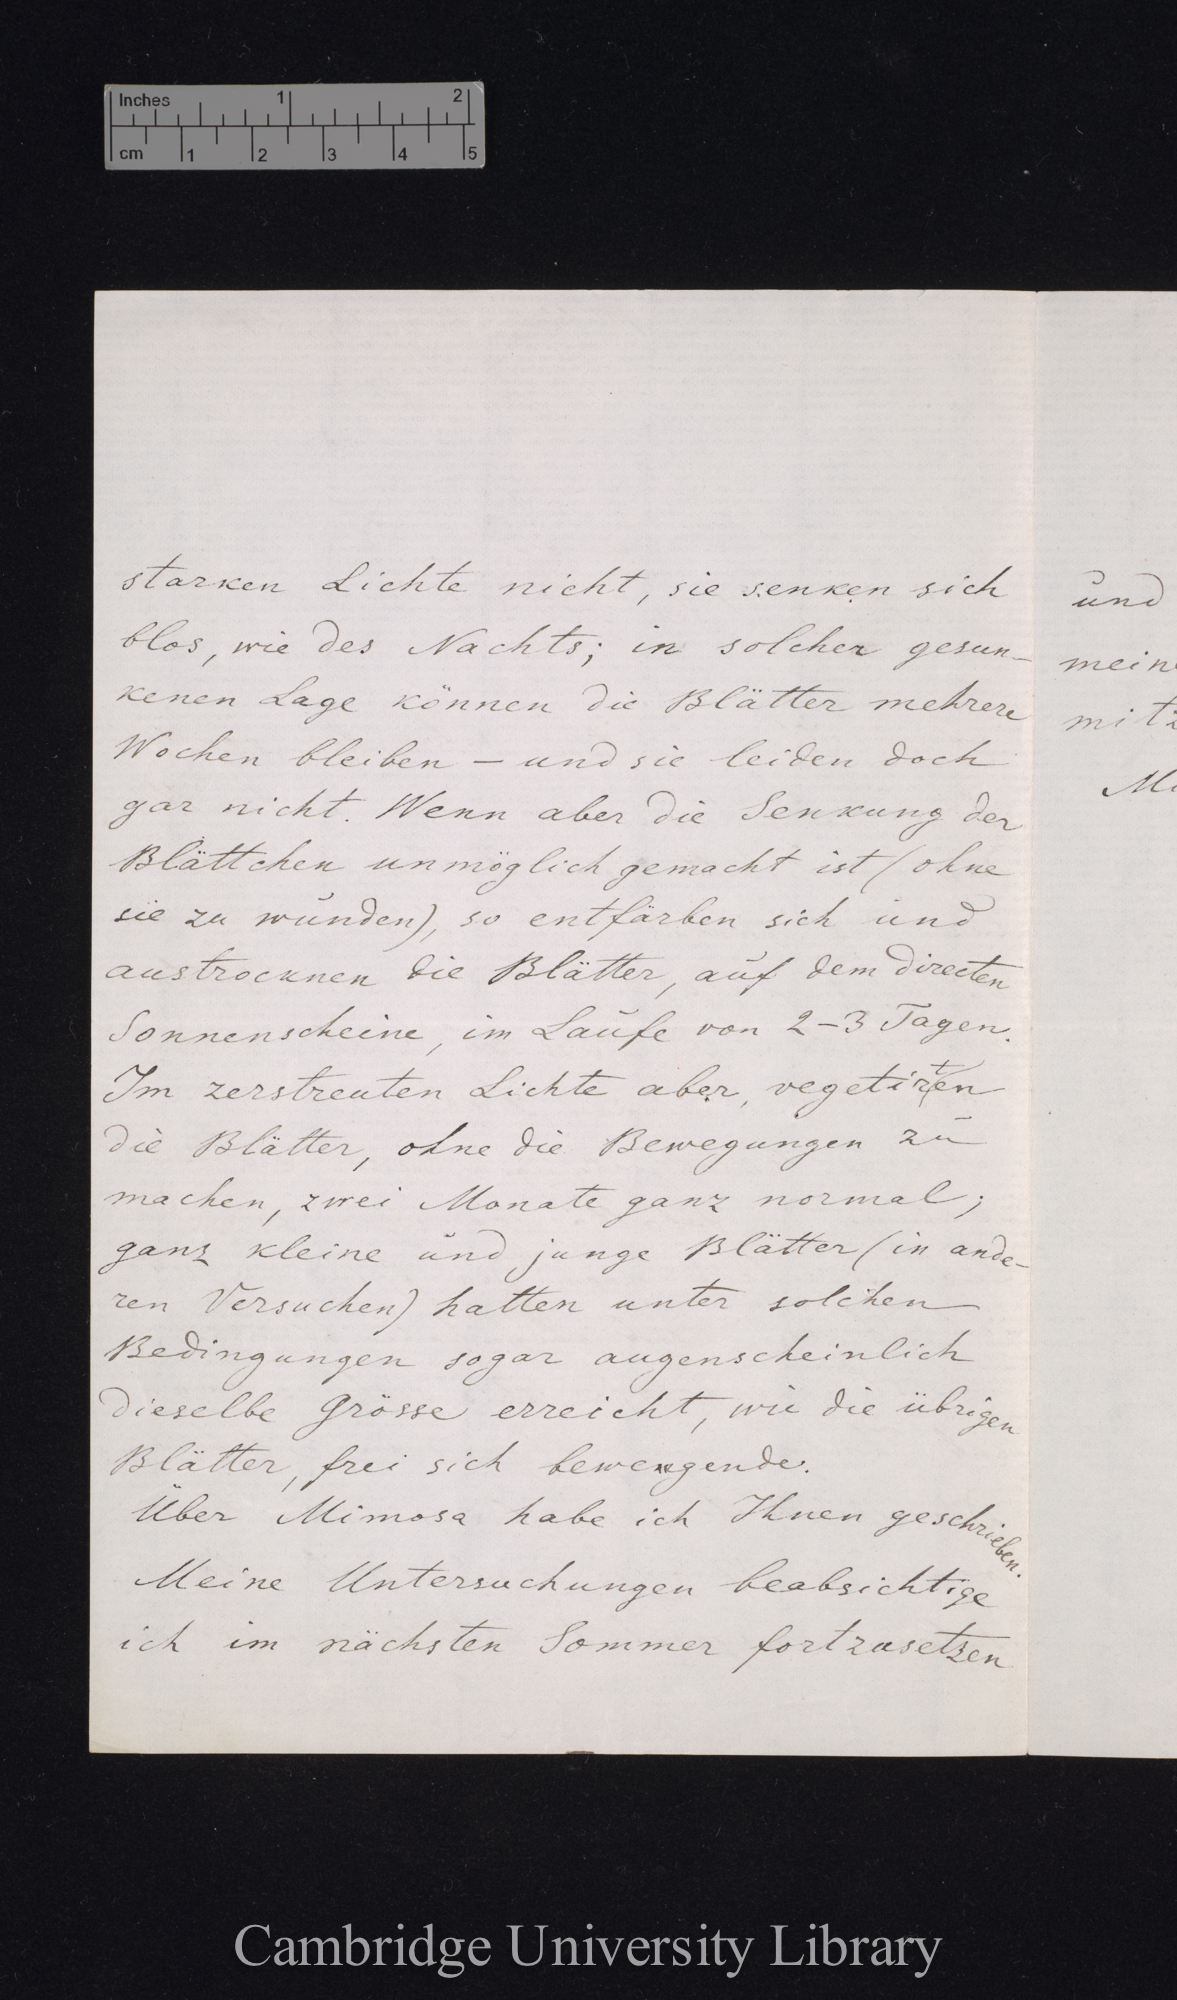 Inches 1 2
cm 1 2 3 4 5
starken Lichte nicht, sie senken sich
blos, wie des Nachts; in solcher gesun-
kenen Lage können die Blätter mehrere
Wochen bleiben – und sie leiden doch
gar nicht. Wenn aber die Senkung der
Blättchen unmöglich gemacht ist (ohne
sie zu wunden), so entfärben sich und
austrocknen die Blätter, auf dem directen
Sonnenscheine, im Laufe von 2–3 Tagen.
Im zerstreuten Lichte aber, vegetirten
die Blätter, ohne die Bewegungen zu
machen, zwei Monate ganz normal;
ganz kleine und junge Blätter (in ande-
ren Versuchen) hatten unter solchen
Bedingungen sogar augenscheinlich
dieselbe Grösse erreicht, wie die übrigen
Blätter, frei sich bewegende.
Über Mimosa habe ich Ihnen geschrieben.
Meine Untersuchungen beabsichtige
ich im nächsten Sommer fortzusetzen
und
mein
mitz
Cambridge University Library